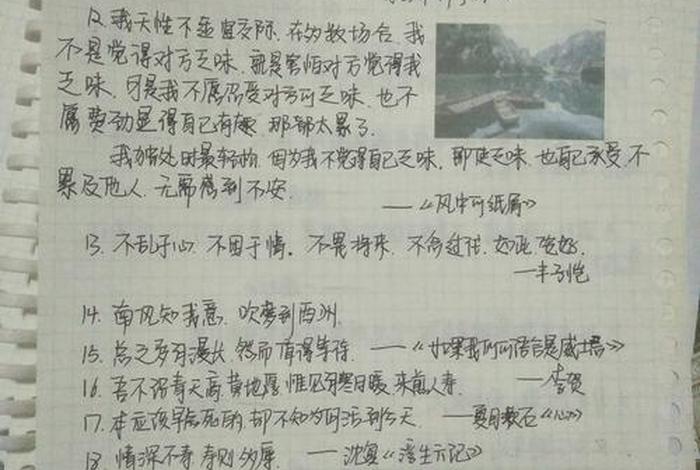 12. 我天性不宜交际. 在多数场合, 我
不是觉得对方乏味, 就是害怕对方觉得我
乏味. 可是我不愿忍受对方的乏味, 也不
愿费劲显得自己有趣. 那都太累了.
我独处时最轻松, 因为我不觉得自己乏味. 即使乏味, 也自己承受, 不
累及他人, 无需感到不安.
——《风中的纸屑》
13. 不乱于心. 不困于情。不畏将来. 不念过往. 如此, 安好.
—丰子恺
14. 南风知我意. 吹梦到西洲.
15. 总之岁月漫长 然而值得等待. ——《如果我们的语言是威士忌》
16. 吾不识青天高, 黄地厚. 惟见月寒日暖, 来煎人寿. ——李贺
17. 本应该早些死的, 却不知为何活到今天. ——夏目漱石《心》
18. 情深不寿 ——沈复《浮生六记》